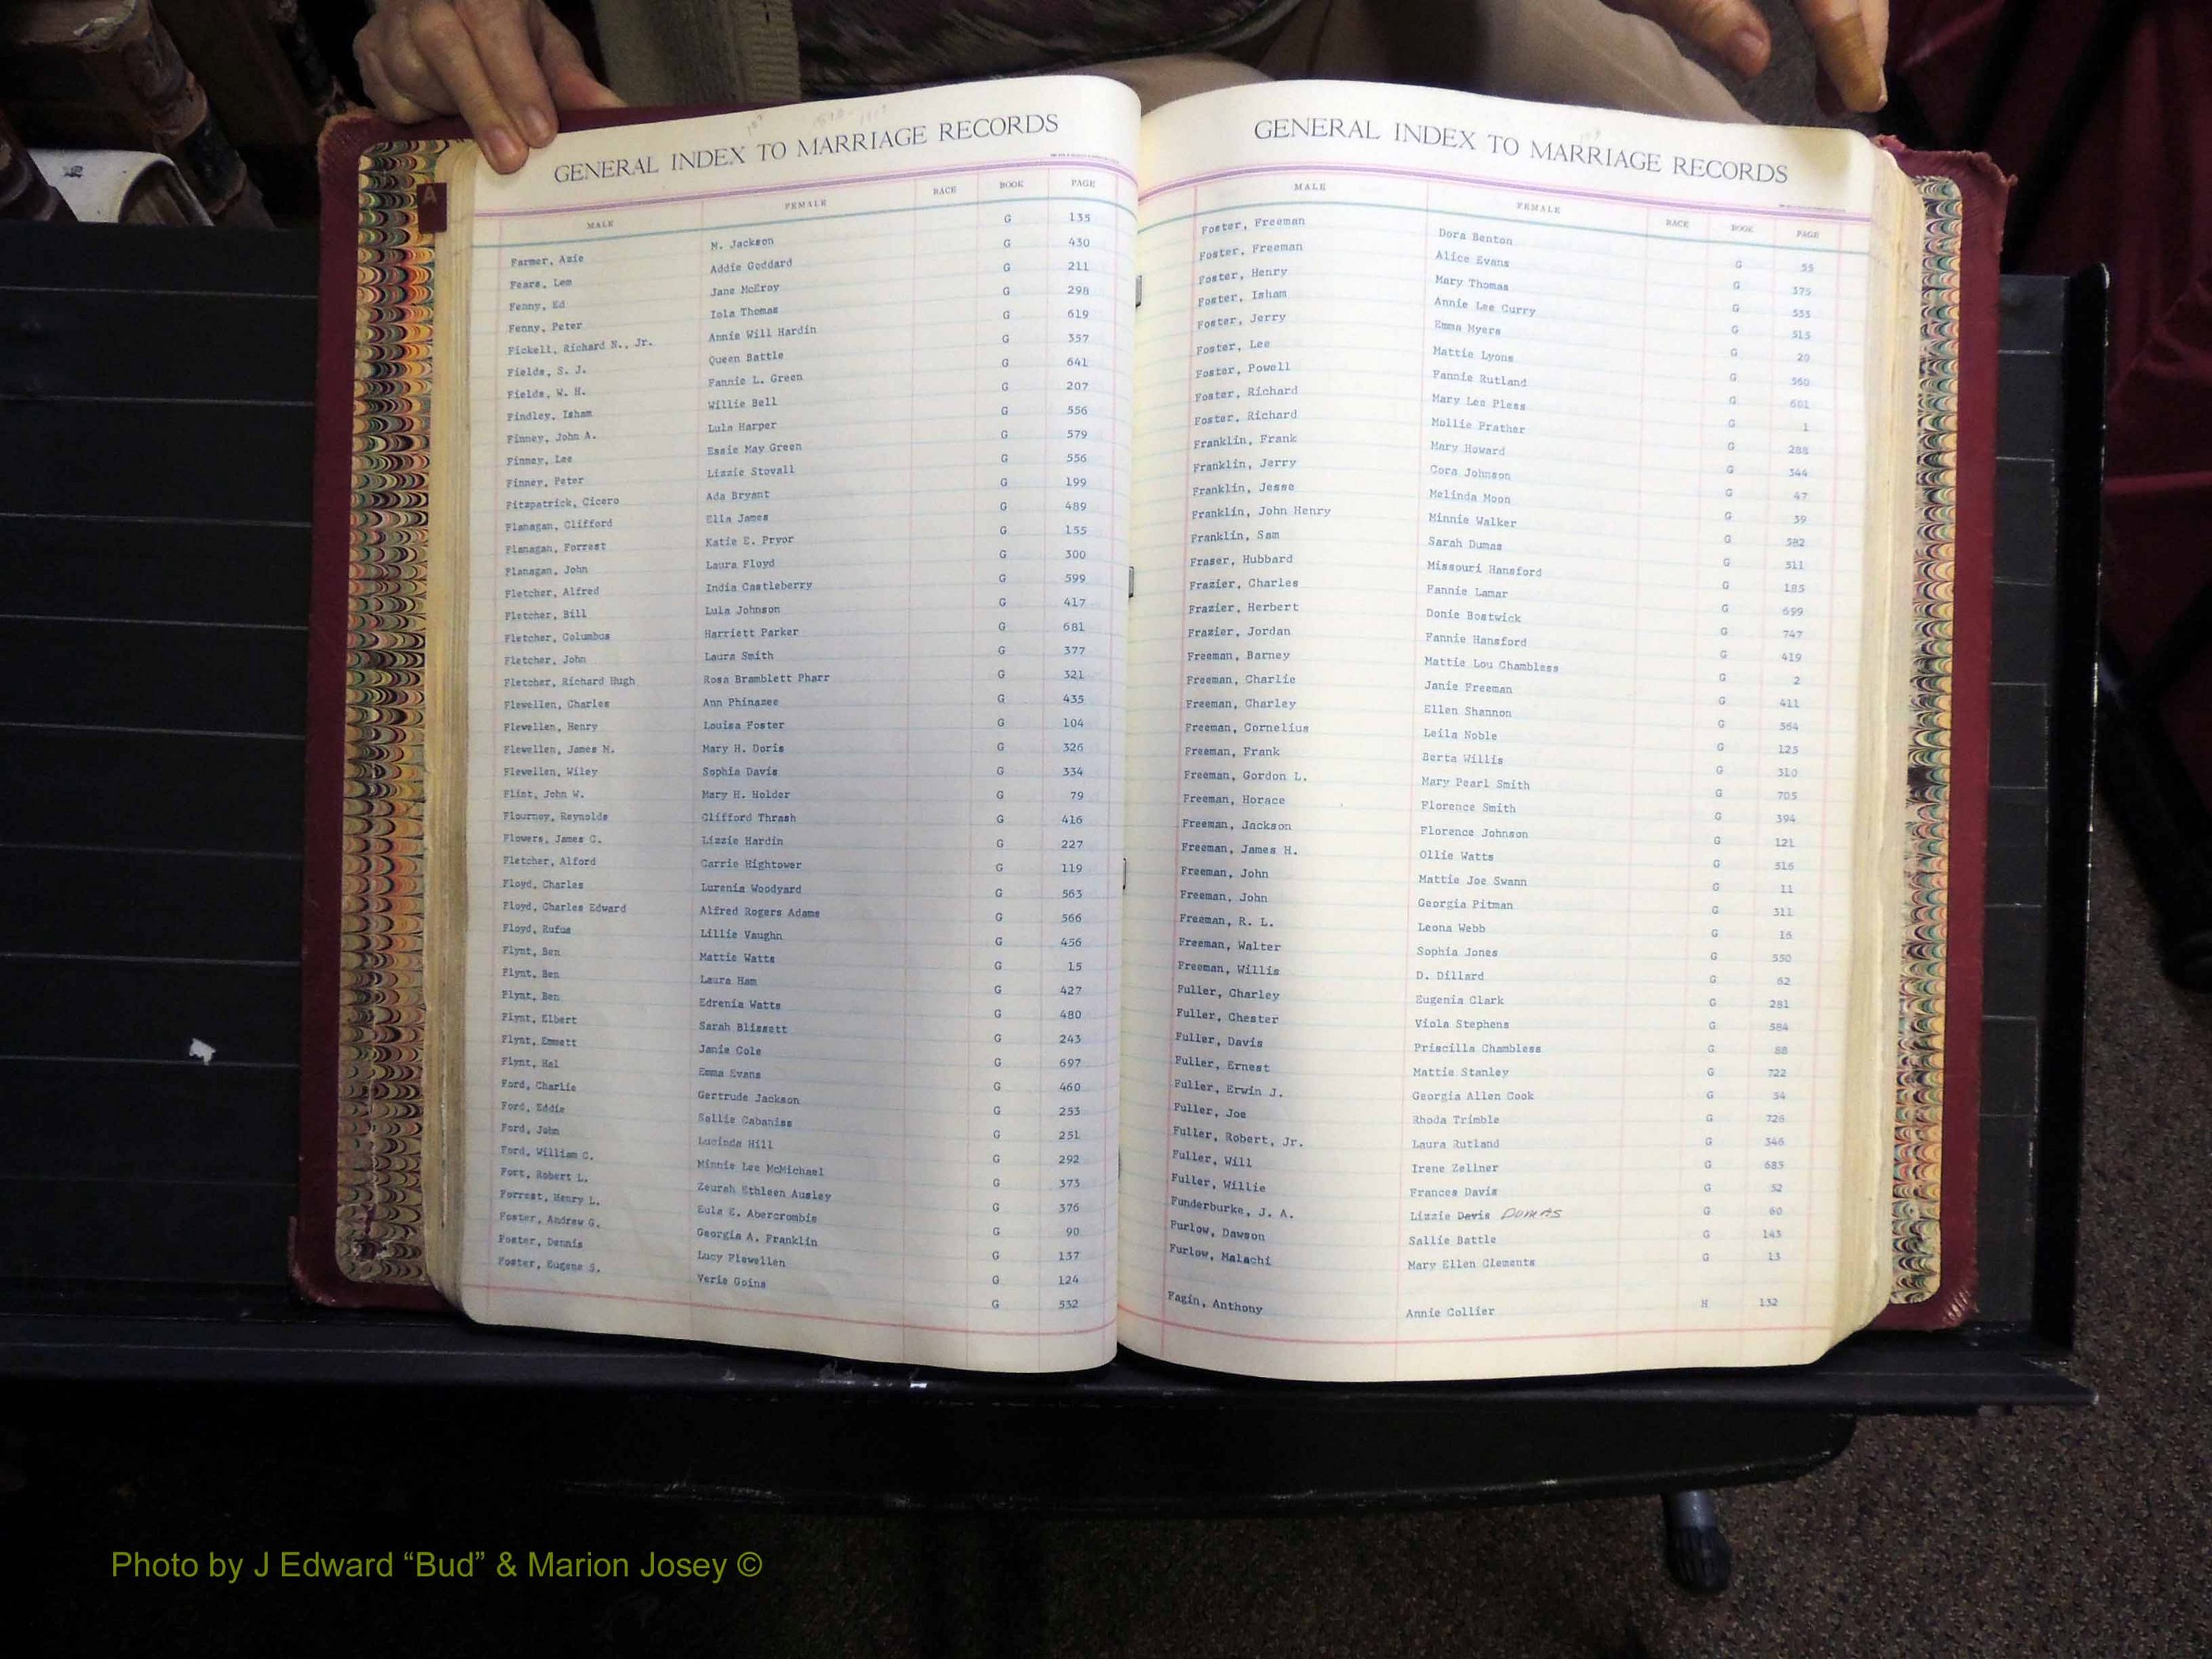 GENERAL INDEX TO MARRIAGE RECORDS
MALE FEMALE RACE BOOK PAGE
Farmer, Azie M. Jackson G 135
Fears, Lem Addie Goddard G 430
Fenny, Ed Jane McElroy G 211
Fenny, Peter Iola Thomas G 298
Fickell, Richard N., Jr. Annie Will Hardin G 619
Fields, S. J. Queen Battle G 357
Fields, W. H. Fannie L. Green G 641
Findley, Isham Willie Bell G 207
Finney, John A. Lula Harper G 556
Finney, Lee Essie May Green G 579
Finney, Peter Lizzie Stovall G 556
Fitzpatrick, Cicero Ada Bryant G 199
Flanagan, Clifford Ella James G 489
Flanagan, Forrest Katie E. Pryor G 155
Flanagan, John Laura Floyd G 300
Fletcher, Alfred India Castleberry G 599
Fletcher, Bill Lula Johnson G 417
Fletcher, Columbus Harriett Parker G 681
Fletcher, John Laura Smith G 377
Fletcher, Richard Hugh Rosa Bramblett Pharr G 321
Flewellen, Charles Ann Phinazee G 435
Flewellen, Henry Louisa Foster G 104
Flewellen, James M. Mary H. Doris G 326
Flewellen, Wiley Sophia Davis G 334
Flint, John W. Mary H. Holder G 79
Flournoy, Reynolds Clifford Thrash G 416
Flowers, James C. Lizzie Hardin G 227
Fletcher, Alford Carrie Hightower G 119
Floyd, Charles Lurenia Woodyard G 563
Floyd, Charles Edward Alfred Rogers Adams G 566
Floyd, Rufus Lillie Vaughn G 456
Flynt, Ben Mattie Watts G 15
Flynt, Ben Laura Ham G 427
Flynt, Ben Edrenia Watts G 480
Flynt, Elbert Sarah Blissett G 243
Flynt, Emmett Janie Cole G 697
Flynt, Hal Emma Evans G 460
Ford, Charlie Gertrude Jackson G 253
Ford, Eddie Sallie Cabaniss G 251
Ford, John Lucinda Hill G 292
Ford, William C. Minnie Lee McMichael G 373
Fort, Robert L. Zeurah Ethleen Ausley G 376
Forrest, Henry L. Eula E. Abercrombie G 90
Foster, Andrew G. Georgia A. Franklin G 137
Foster, Dennis Lucy Flewellen G 124
Foster, Eugene S. Verie Goins G 532
GENERAL INDEX TO MARRIAGE RECORDS
MALE FEMALE RACE BOOK PAGE
Foster, Freeman Dora Benton G 55
Foster, Freeman Alice Evans G 375
Foster, Henry Mary Thomas G 553
Foster, Isham Annie Lee Curry G 515
Foster, Jerry Emma Myers G 20
Foster, Lee Mattie Lyons G 560
Foster, Powell Fannie Rutland G 601
Foster, Richard Mary Lee Pless G 1
Foster, Richard Mollie Prather G 288
Franklin, Frank Mary Howard G 344
Franklin, Jerry Cora Johnson G 47
Franklin, Jesse Melinda Moon G 39
Franklin, John Henry Minnie Walker G 582
Franklin, Sam Sarah Dumas G 511
Fraser, Hubbard Missouri Hansford G 185
Frazier, Charles Fannie Lamar G 699
Frazier, Herbert Donie Bostwick G 747
Frazier, Jordan Fannie Hansford G 419
Freeman, Barney Mattie Lou Chambless G 2
Freeman, Charlie Janie Freeman G 411
Freeman, Charley Ellen Shannon G 564
Freeman, Cornelius Leila Noble G 125
Freeman, Frank Berta Willis G 310
Freeman, Gordon L. Mary Pearl Smith G 705
Freeman, Horace Florence Smith G 394
Freeman, Jackson Florence Johnson G 121
Freeman, James H. Ollie Watts G 516
Freeman, John Mattie Joe Swann G 11
Freeman, John Georgia Pitman G 311
Freeman, R. L. Leona Webb G 16
Freeman, Walter Sophia Jones G 550
Freeman, Willis D. Dillard G 62
Fuller, Charley Eugenia Clark G 281
Fuller, Chester Viola Stephens G 584
Fuller, Davis Priscilla Chambless G 88
Fuller, Ernest Mattie Stanley G 722
Fuller, Erwin J. Georgia Allen Cook G 34
Fuller, Joe Rhoda Trimble G 726
Fuller, Robert, Jr. Laura Rutland G 346
Fuller, Will Irene Zellner G 685
Fuller, Willie Frances Davis G 52
Funderburke, J. A. Lizzie Davis Dumas G 60
Furlow, Dawson Sallie Battle G 143
Furlow, Malachi Mary Ellen Clements G 13
Fagin, Anthony Annie Collier H 132
A
Photo by J Edward “Bud” & Marion Josey ©